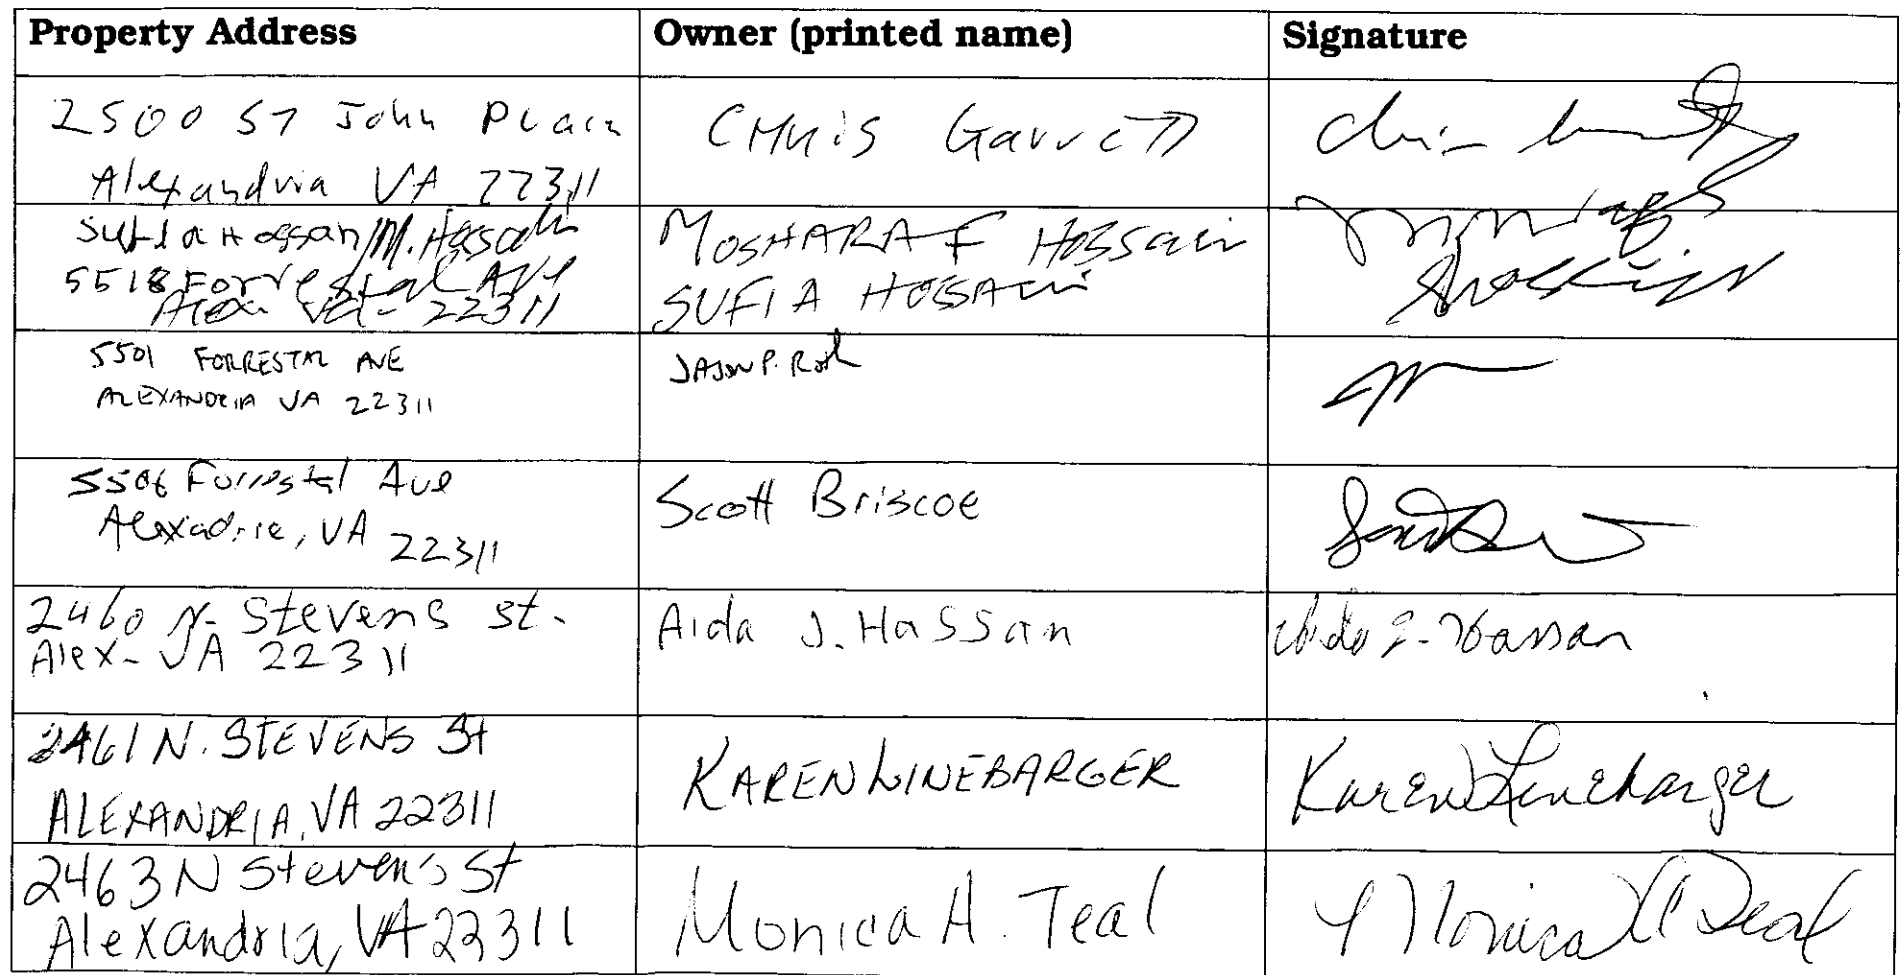 Property Address Owner (printed name) Signature
2500 ST John Place
Alexandria VA 22311
CHris Garrett
Sufia Hossan/M. Hossain
5518 Forrestal AVE
Alex. Va- 22311
MOSHARAF HOSSain
SUFIA HOSSAin
5501 FORRESTAL AVE
ALEXANDRIA VA 22311
JASON P. Roth
5506 Forrestal Ave
Alexadria, VA 22311
Scott Briscoe
2460 N. Stevens st.
Alex- VA 22311
Aida J. Hassan
Aida J. Hassan
2461 N. STEVENS St
ALEXANDRIA, VA 22311
KAREN LINEBARGER
Karen Linebarger
2463 N Stevens St
Alexandria, VA 22311
Monica A. Teal
Monica A Teal